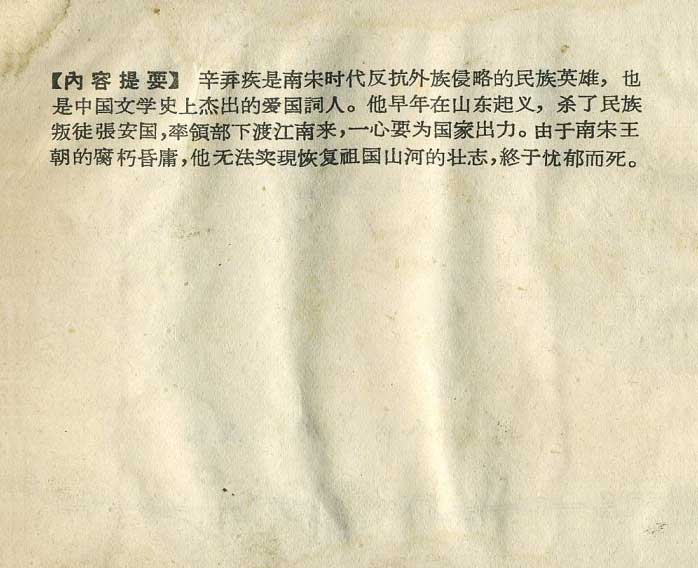 【內容提要】 辛弃疾是南宋时代反抗外族侵略的民族英雄，也
是中国文学史上杰出的爱国詞人。他早年在山东起义，杀了民族
叛徒張安国，率領部下渡江南来，一心要为国家出力。由于南宋王
朝的腐朽昏庸，他无法实現恢复祖国山河的壮志，終于忧郁而死。